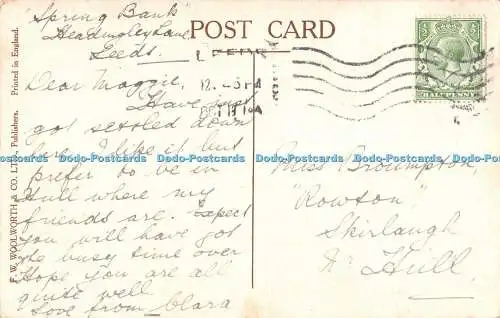 "Spring Bank"
Headingley Lane
Leeds.
POST CARD
LEEDS
12.45 PM
Dear Maggie,
Have just
got settled down
here I like it but
prefer to be in
Hull where my
friends are. Expect
you will have got
the busy time over
Hope you are all
quite well
Love from Clara
HALFPENNY
Miss Brompton
"Rowton"
Skirlaugh
Nr Hull
F. W. WOOLWORTH & CO. LTD., Publishers. Printed in England.
Dodo-Postcards Dodo-Postcards Dodo-Postcards Dodo-Postcards Dodo-Postcards Dodo-Postcards